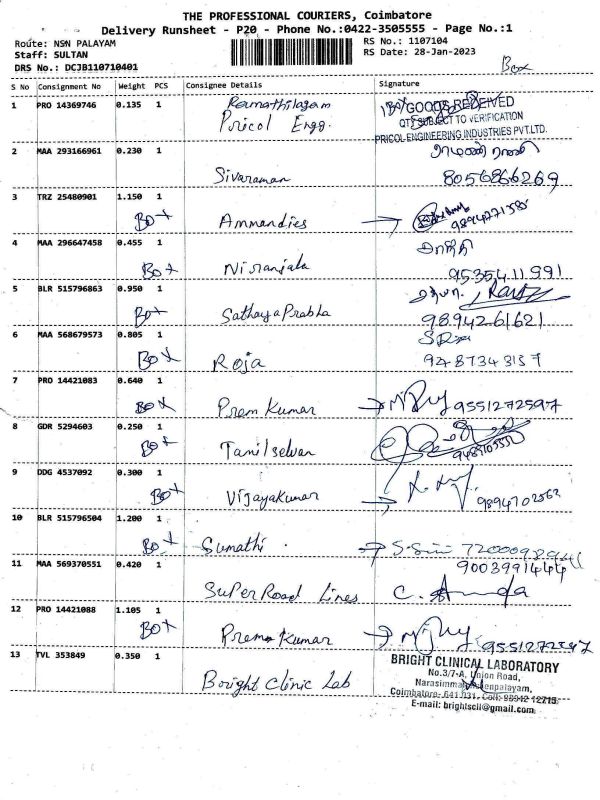 THE PROFESSIONAL COURIERS, Coimbatore
Delivery Runsheet - P20 - Phone No.:0422-3505555 - Page No.:1
Route: NSN PALAYAM RS No.: 1107104
Staff: SULTAN RS Date: 28-Jan-2023
DRS No.: DCJB110710401 Box
S No Consignment No Weight PCS Consignee Details Signature
1 PRO 14369746 0.135 1 Ramathilagam 1 Box GOODS RECEIVED
Pricol Engg. QTY SUBJECT TO VERIFICATION
PRICOL ENGINEERING INDUSTRIES PVT.LTD.
2 MAA 293166961 0.230 1
Sivaraman 8056866269
3 TRZ 25480901 1.150 1
Box Ammandies
4 MAA 296647458 0.455 1
Box Niranjala 9535411991
5 BLR 515796863 0.950 1
Box Sathaya Prabha 9894261621
6 MAA 568679573 0.805 1
Box Roja 9487343157
7 PRO 14421083 0.640 1
Box Prem Kumar 9551272597
8 GDR 5294603 0.250 1
Box Tamilselvan
9 DDG 4537092 0.300 1
Box Vijayakumar 9894702562
10 BLR 515796504 1.200 1
Box Sumathi
11 MAA 569370551 0.420 1 9003991444
Super Road Lines
12 PRO 14421088 1.105 1
Box Prem Kumar 9551272597
13 TVL 353849 0.350 1 BRIGHT CLINICAL LABORATORY
No.3/7-A, Union Road,
Bright Clinic Lab
Coimbatore- 641 031. Cell: 98942 12715
E-mail: brightscli@gmail.com